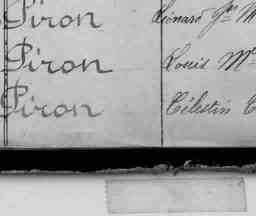 Piron Léonard Jn M
Piron Louis Mn
Piron Célestin